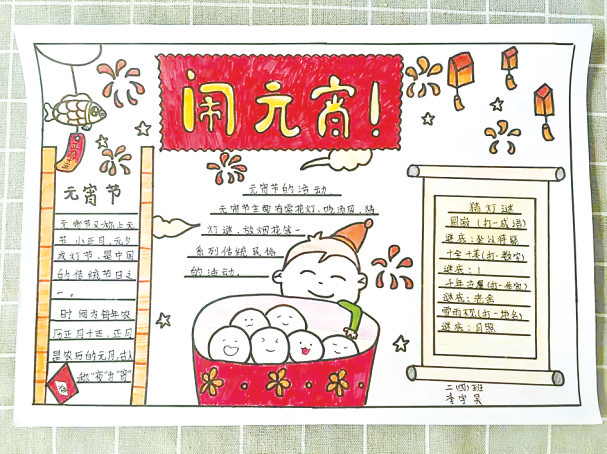 闹元宵!
元宵节
元宵节又称上元
节、小正月、元夕
或灯节,是中国
的传统节日之
一。
时间为每年农
历正月十五,正月
是农历的元月,古人
称“夜”为“宵”
元宵节的活动
元宵节主要有赏花灯、吃汤圆、猜
灯谜、放烟花等一
系列传统民俗
的活动。
猜灯谜
(打一成语)
谜底:坐以待毙
(打一数字)
谜底:1
千年古屋(打一作家)
谜底:老舍
(打一地名)
谜底:日照
二(四)班
李宇昊